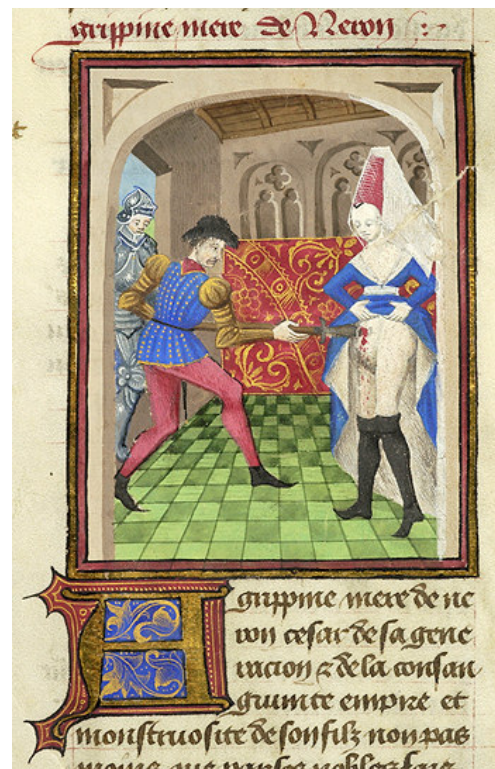 grippine mere de Neron :~
Agrippine mere de ne
ron cesar de sa gene
racion & de la consan
guinite empire et
monstruosite de son filz non pas
moins que par ses nobles fais